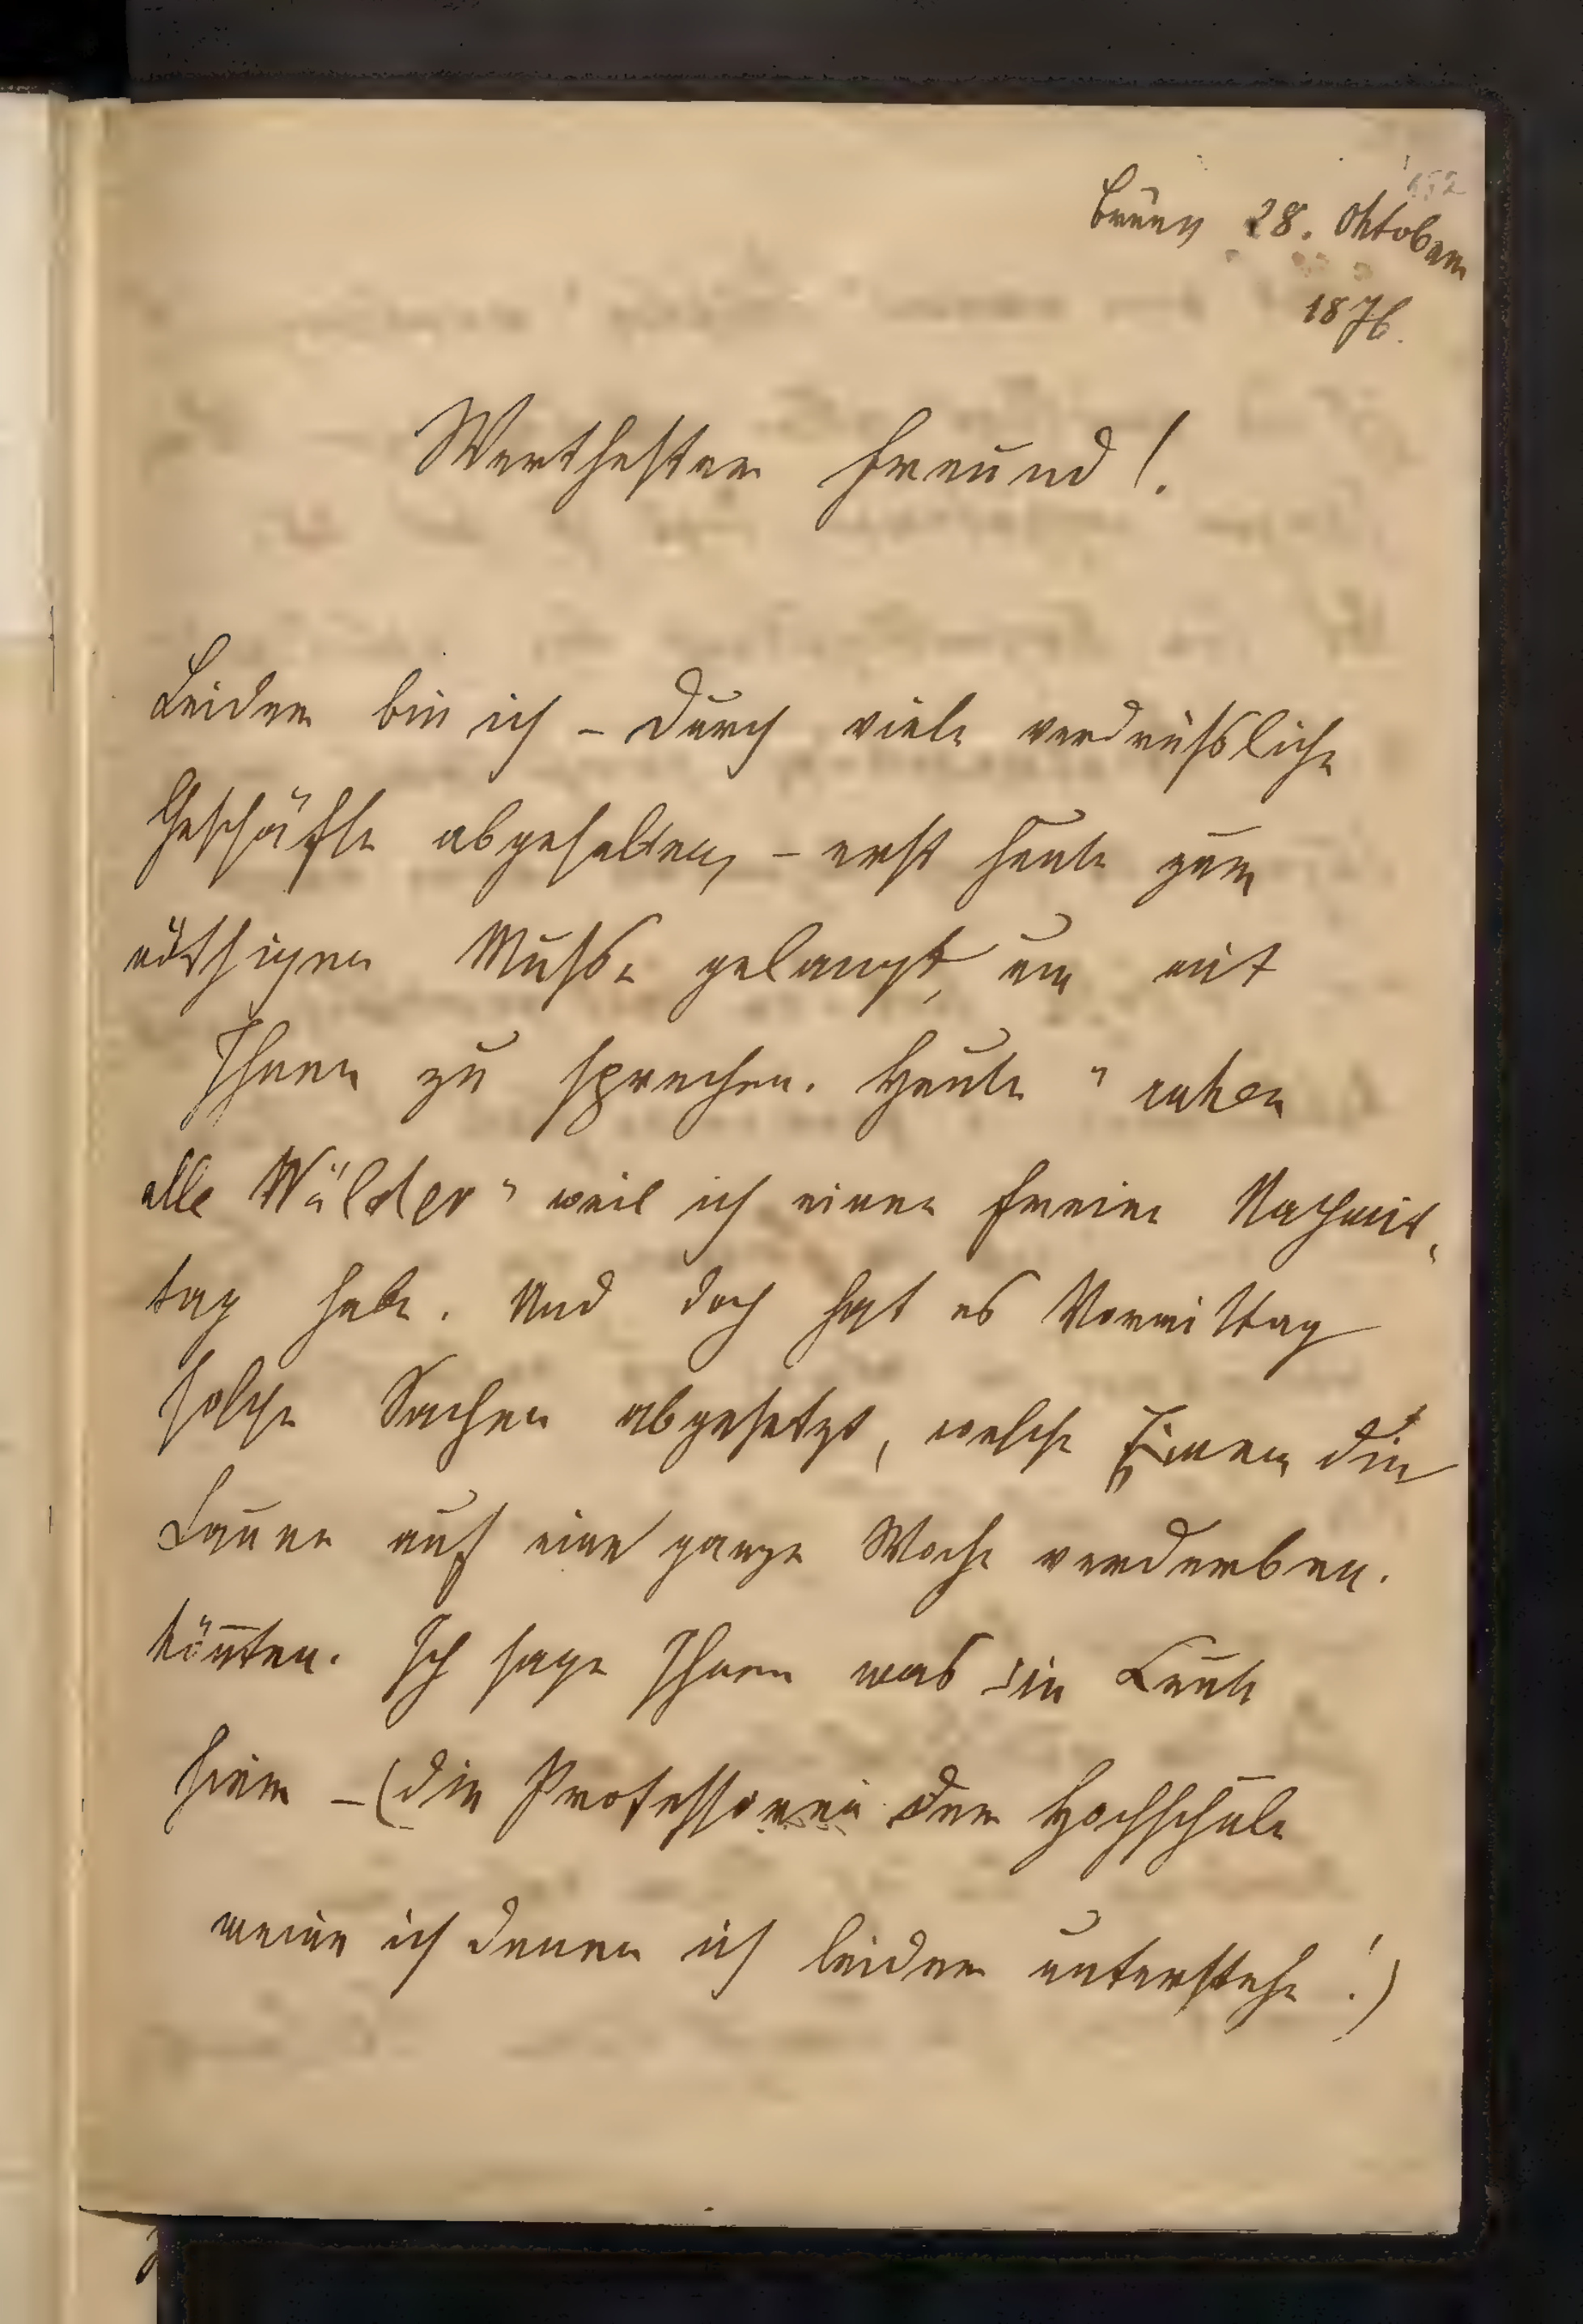 Brünn 28. Oktober
1876.
Werthester Freund!
Leider bin ich – durch viele verdrüssliche
Geschäfte abgehalten, – erst heute zur
nöthigen Musse gelangt, um mit
Ihnen zu sprechen. Heute "ruhen
alle Wälder" weil ich einen freien Nachmit,
tag habe. Und doch hat es Vormittag
solche Sachen abgesetzt, welche Einem die
Laune auf eine ganze Woche verderben.
könnten. Ich sage Ihnen was die Leute
hier – (die Professoren der Hochschule
meine ich denen ich leider unterstehe!)